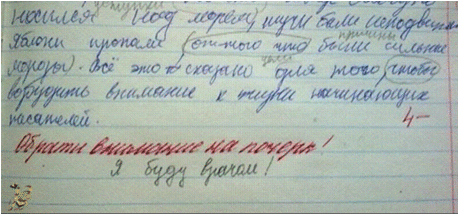 носился над морем, тучи были
причины
Яблоки пропали (оттого что были сильные
цели
морозы). Всё это сказано для того (чтобы
возбудить внимание к жизни начинающих
писателей. 4-
Обрати внимание на почерк!
Я буду врачом!